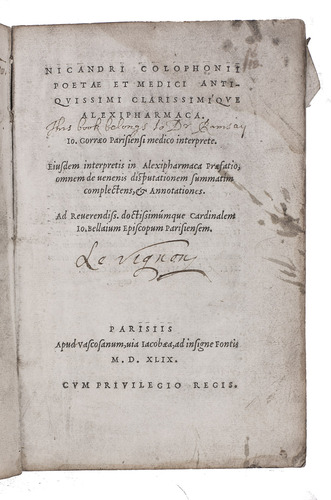 NICANDRI COLOPHONII
POETAE ET MEDICI ANTI-
QVISSIMI CLARISSIMIQVE
ALEXIPHARMACA.
This book belongs to Dr. Ramsay
Io. Corræo Parisiensi medico interprete.
Eiusdem interpretis in Alexipharmaca Præfatio,
omnem de venenis disputationem summatim
complectens, & Annotationes.
Ad Reuerendiss. doctissimúmque Cardinalem
Io. Bellaium Episcopum Parisiensem.
Le Vignon
PARISIIS
Apud Vascosanum, uia Iacobæa, ad insigne Fontis
M. D. XLIX.
CVM PRIVILEGIO REGIS.